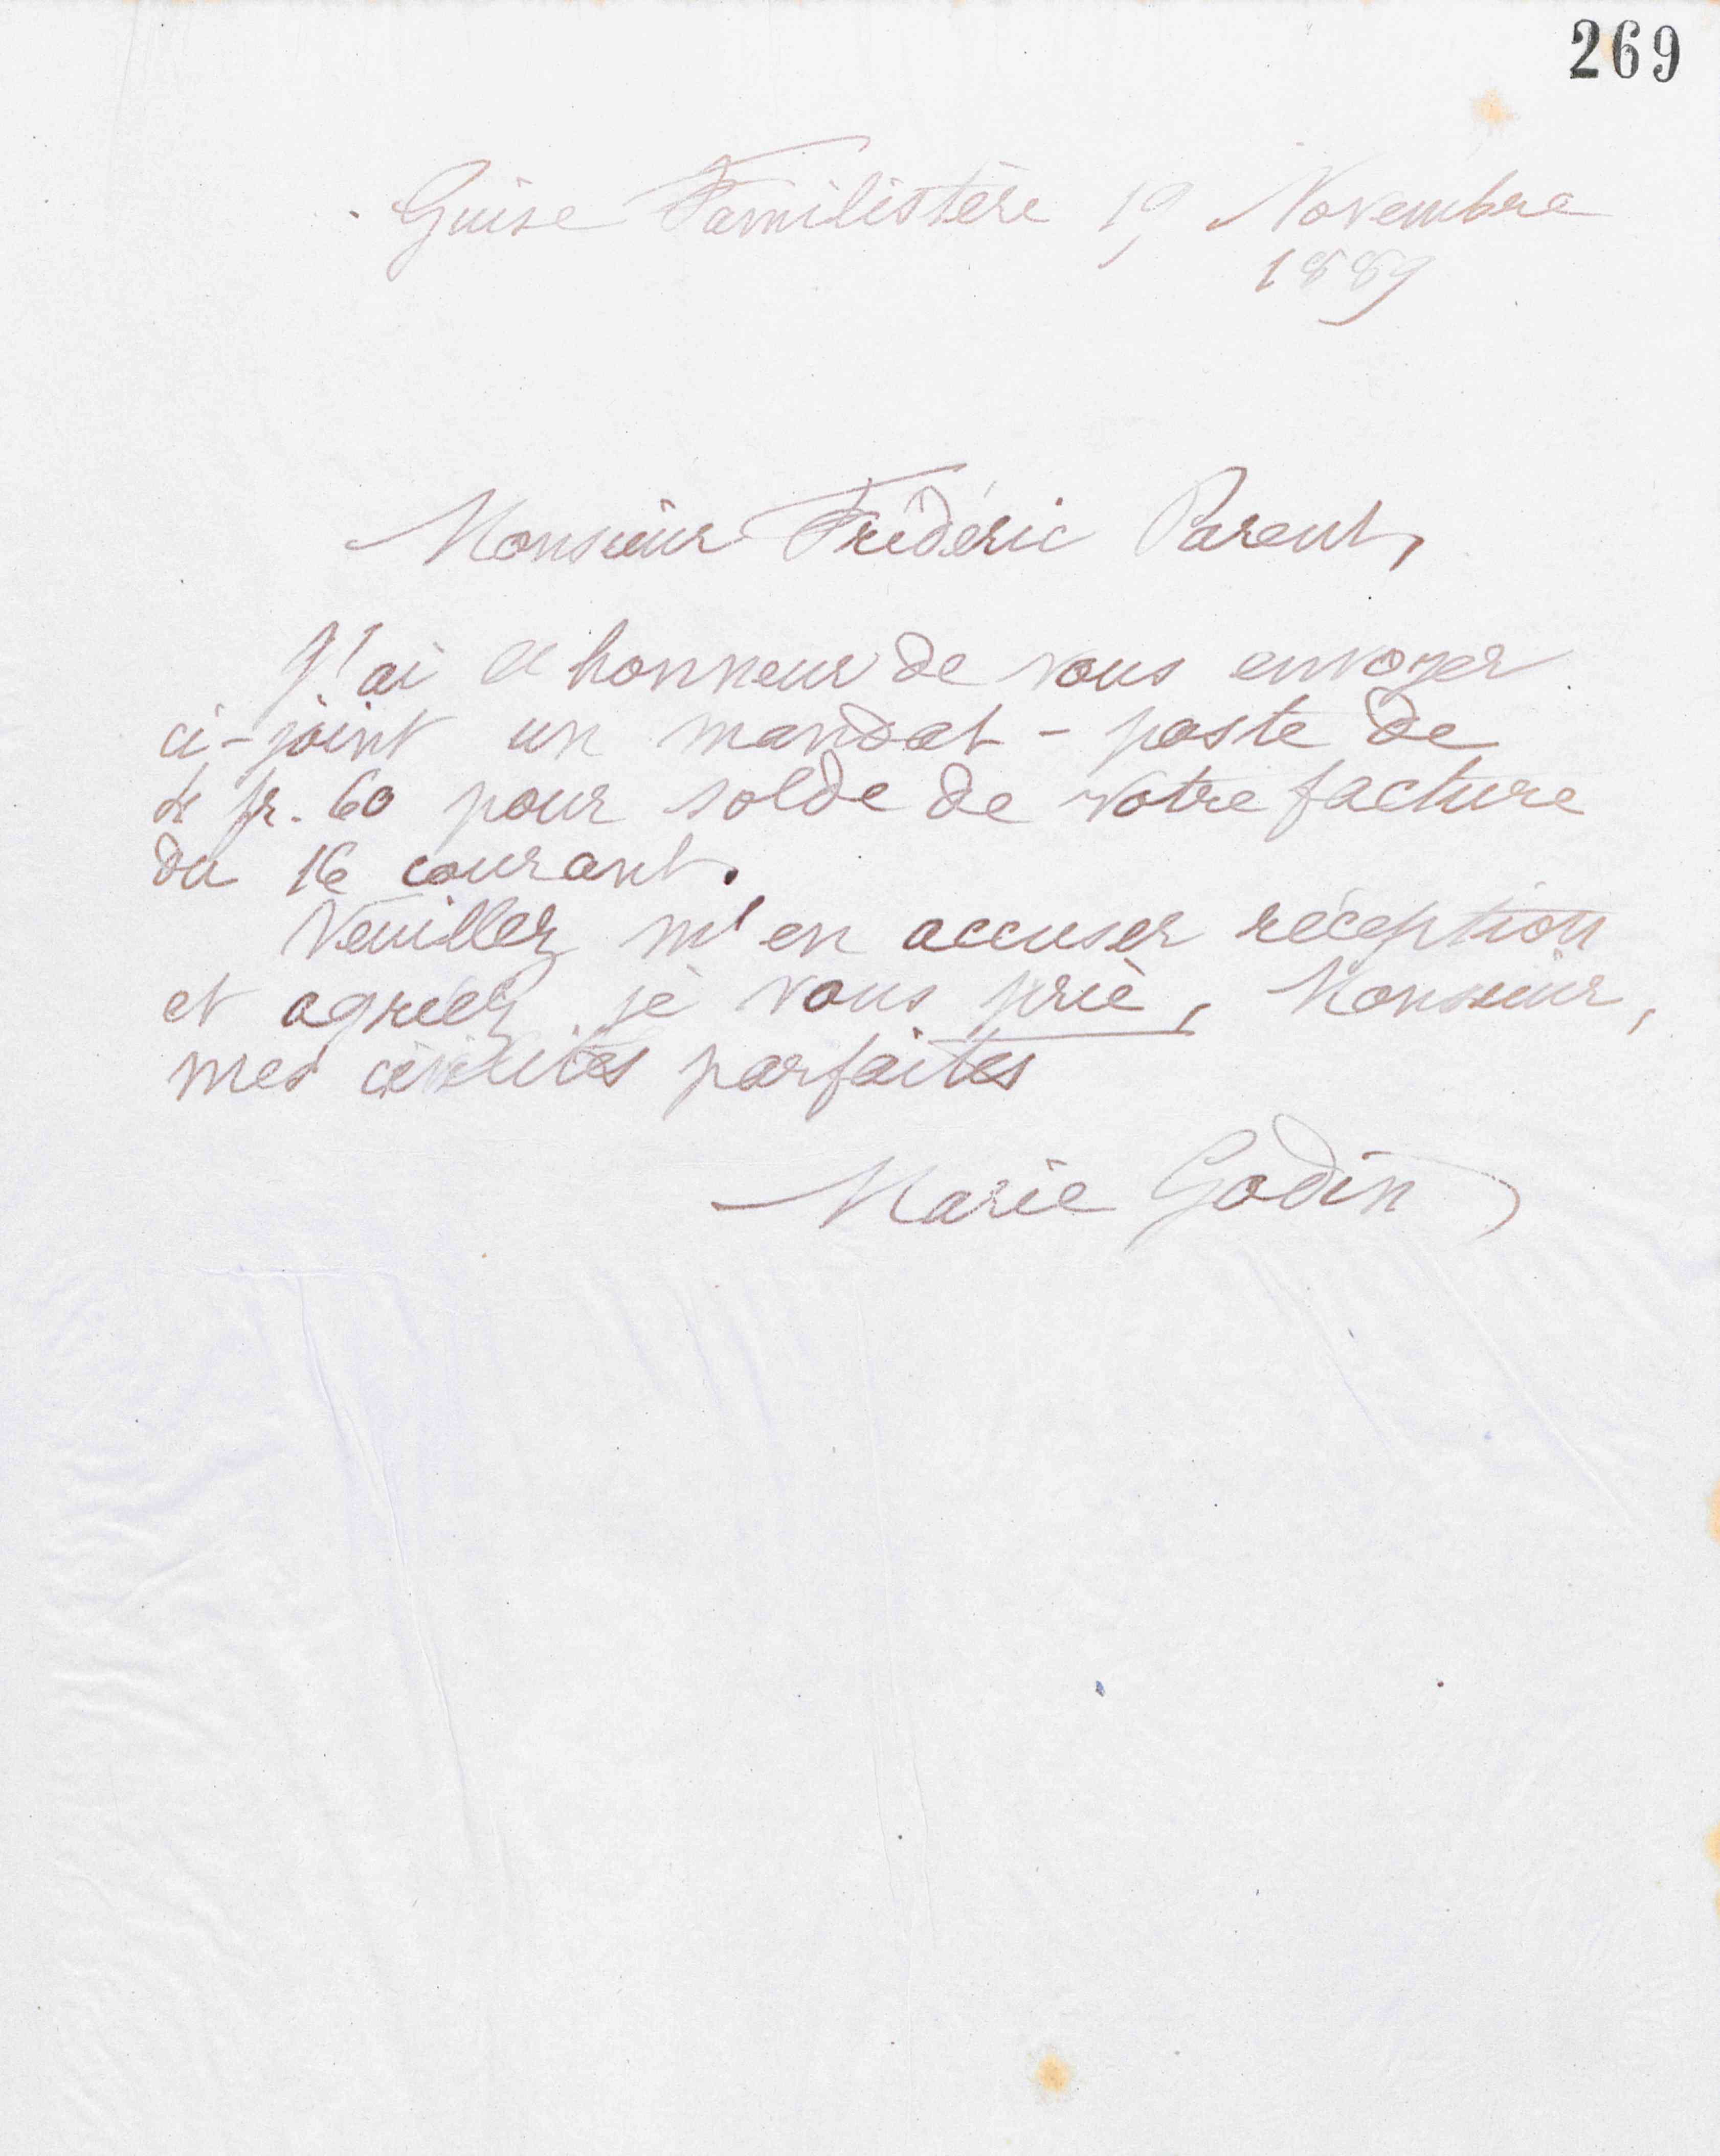 269
Guise Familistère 19 Novembre
1889
Monsieur Frédéric Parent,
J'ai l'honneur de vous envoyer
ci-joint un mandat-poste de
fr. 60 pour solde de votre facture
du 16 courant.
Veuillez m'en accuser réception
et agréez, je vous prie, Monsieur,
mes civilités parfaites
Marie Godin